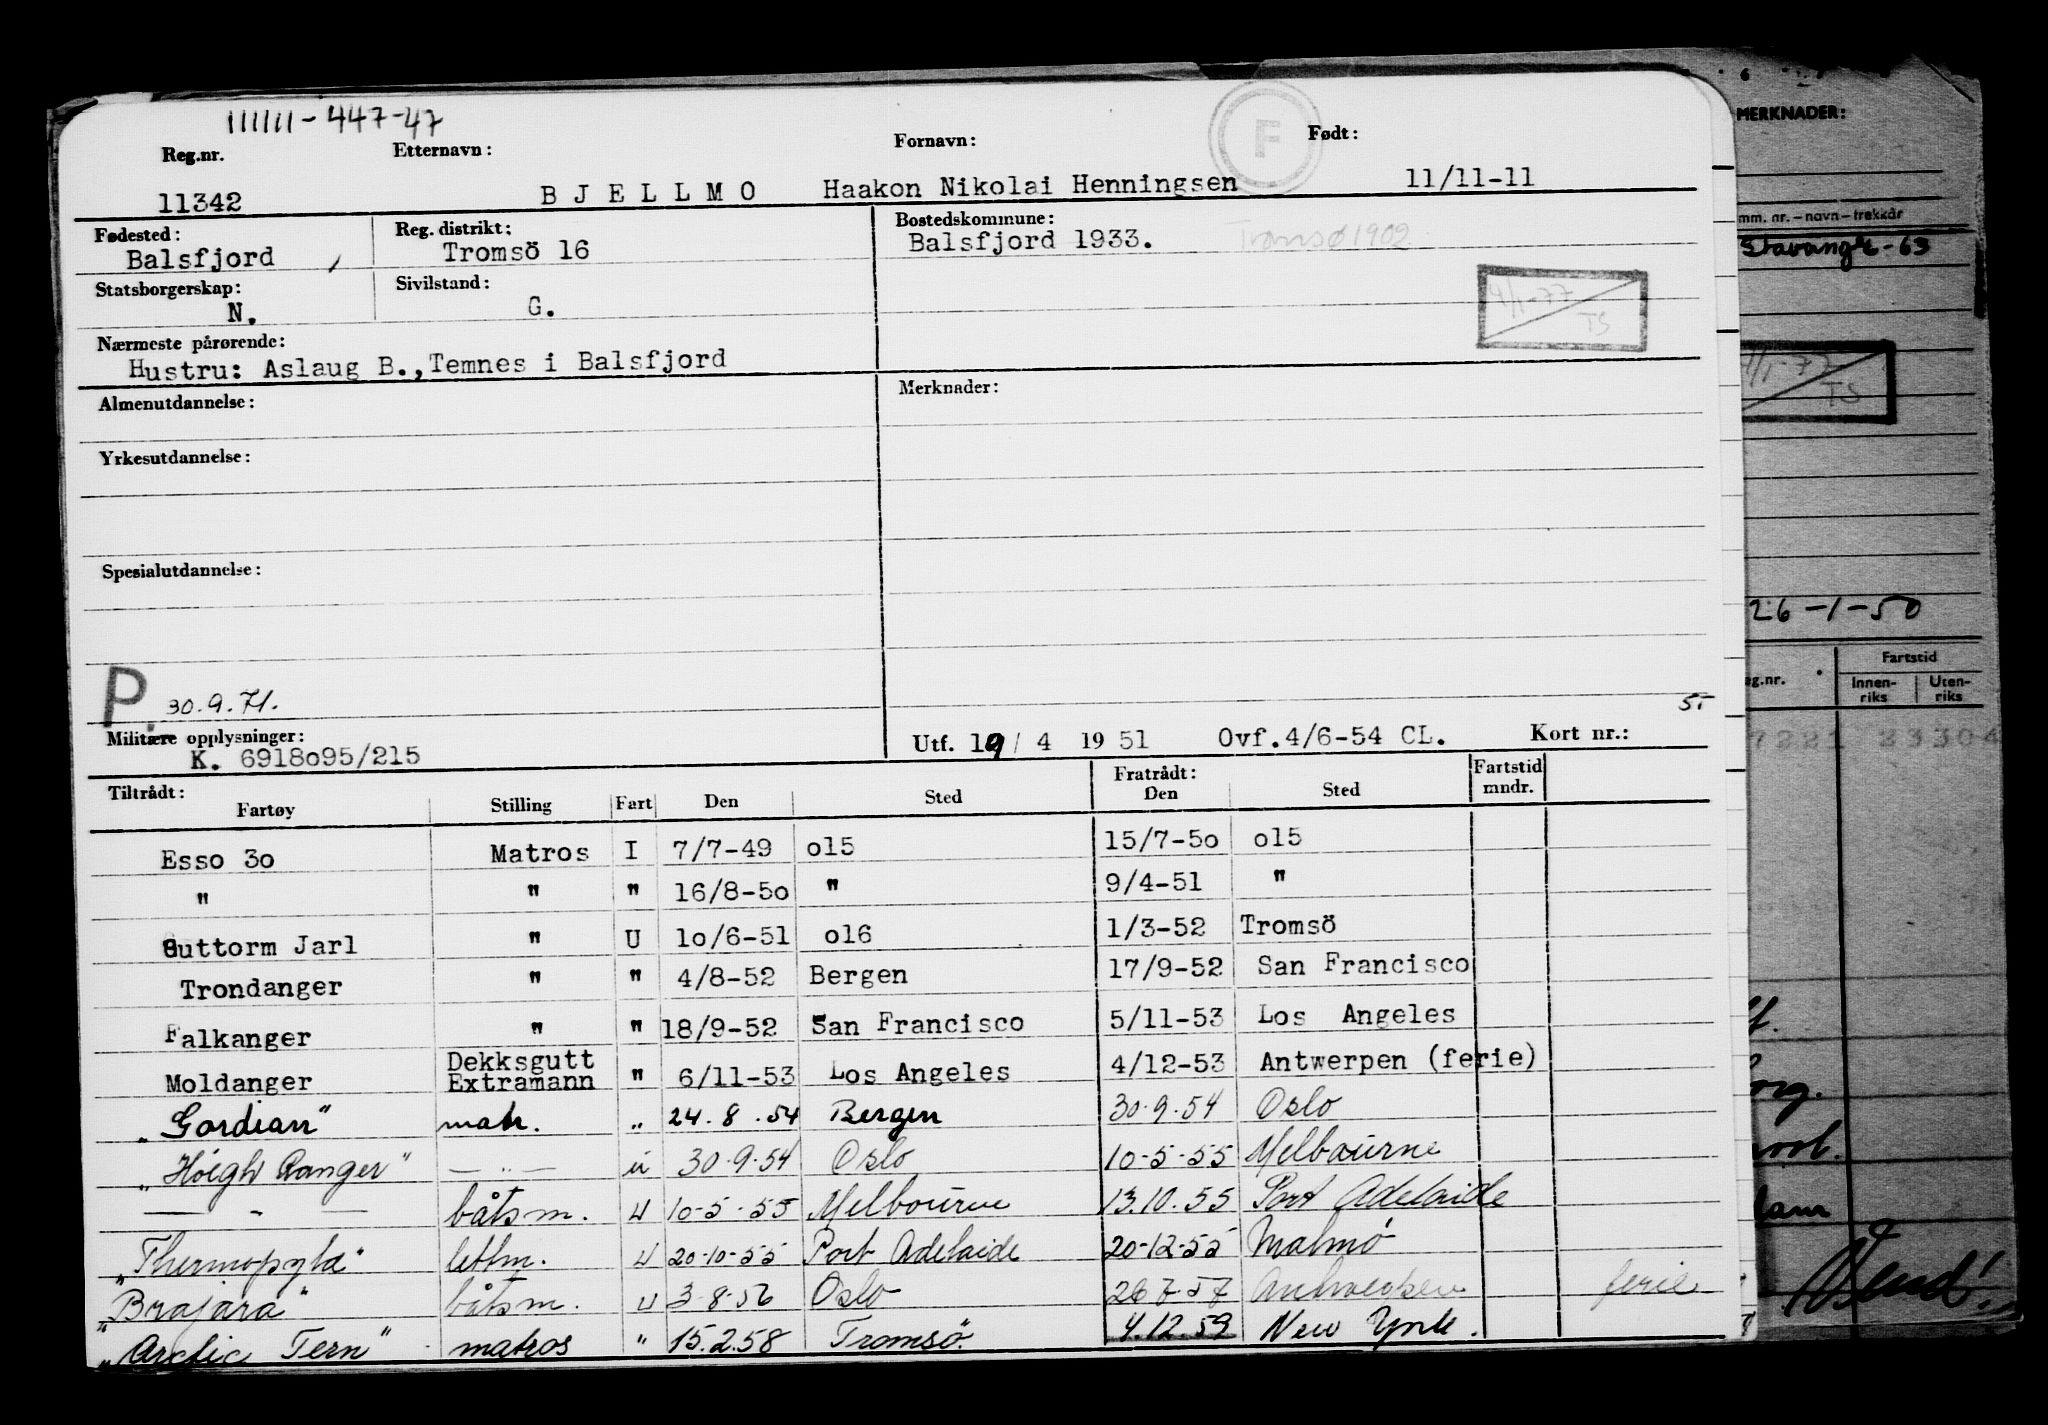 111111-447-47
Reg.nr. Etternavn: Fornavn: F Født:
11342 BJELLMO Haakon Nikolai Henningsen 11/11-11
Fødested: Reg. distrikt: Bostedskommune:
Balsfjord Tromsö 16 Balsfjord 1933. Tromsø 1902
Statsborgerskap: Sivilstand:
N. G. 4/1-77 TS
Nærmeste pårørende:
Hustru: Aslaug B., Temnes i Balsfjord
Almenutdannelse: Merknader:
Yrkesutdannelse:
Spesialutdannelse:
P. 30.9.71.
Militære opplysninger: Utf. 19/ 4 19 51 Ovf.4/6-54 CL. Kort nr.: 5-
K. 6918o95/215
Tiltrådt: Fratrådt: Fartstid mndr.
Fartøy Stilling Fart Den Sted Den Sted
Esso 3o Matros I 7/7-49 o15 15/7-5o o15
" " " 16/8-5o " 9/4-51 "
Guttorm Jarl " U 1o/6-51 o16 1/3-52 Tromsö
Trondanger " " 4/8-52 Bergen 17/9-52 San Francisco
Falkanger " " 18/9-52 San Francisco 5/11-53 Los Angeles
Moldanger Dekksgutt Extramann " 6/11-53 Los Angeles 4/12-53 Antwerpen (ferie)
"Gordian" matr. " 24.8.54 Bergen 30.9.54 Oslo
"Höigh Ranger" — " — u 30.9.54 Oslo 10-5-55 Melbourne
— " — båtsm. u 10-5-55 Melbourne 13.10.55 Port Adelaide
"Thermopylæ" lettm. u 20-10-55 Port Adelaide 20-12-55 Malmö
"Brajara" båtsm. u 3-8-56 Oslo 26 7-57 Antwerpen ferie
"Arctic Tern" matros " 15.2.58 Tromsö. 4.12.59 New York.
MERKNADER:
mm. nr. – navn – trekkår
Stavanger-63
4/1-77 TS
26-1-50
Fartstid
g.nr. Innenriks Utenriks